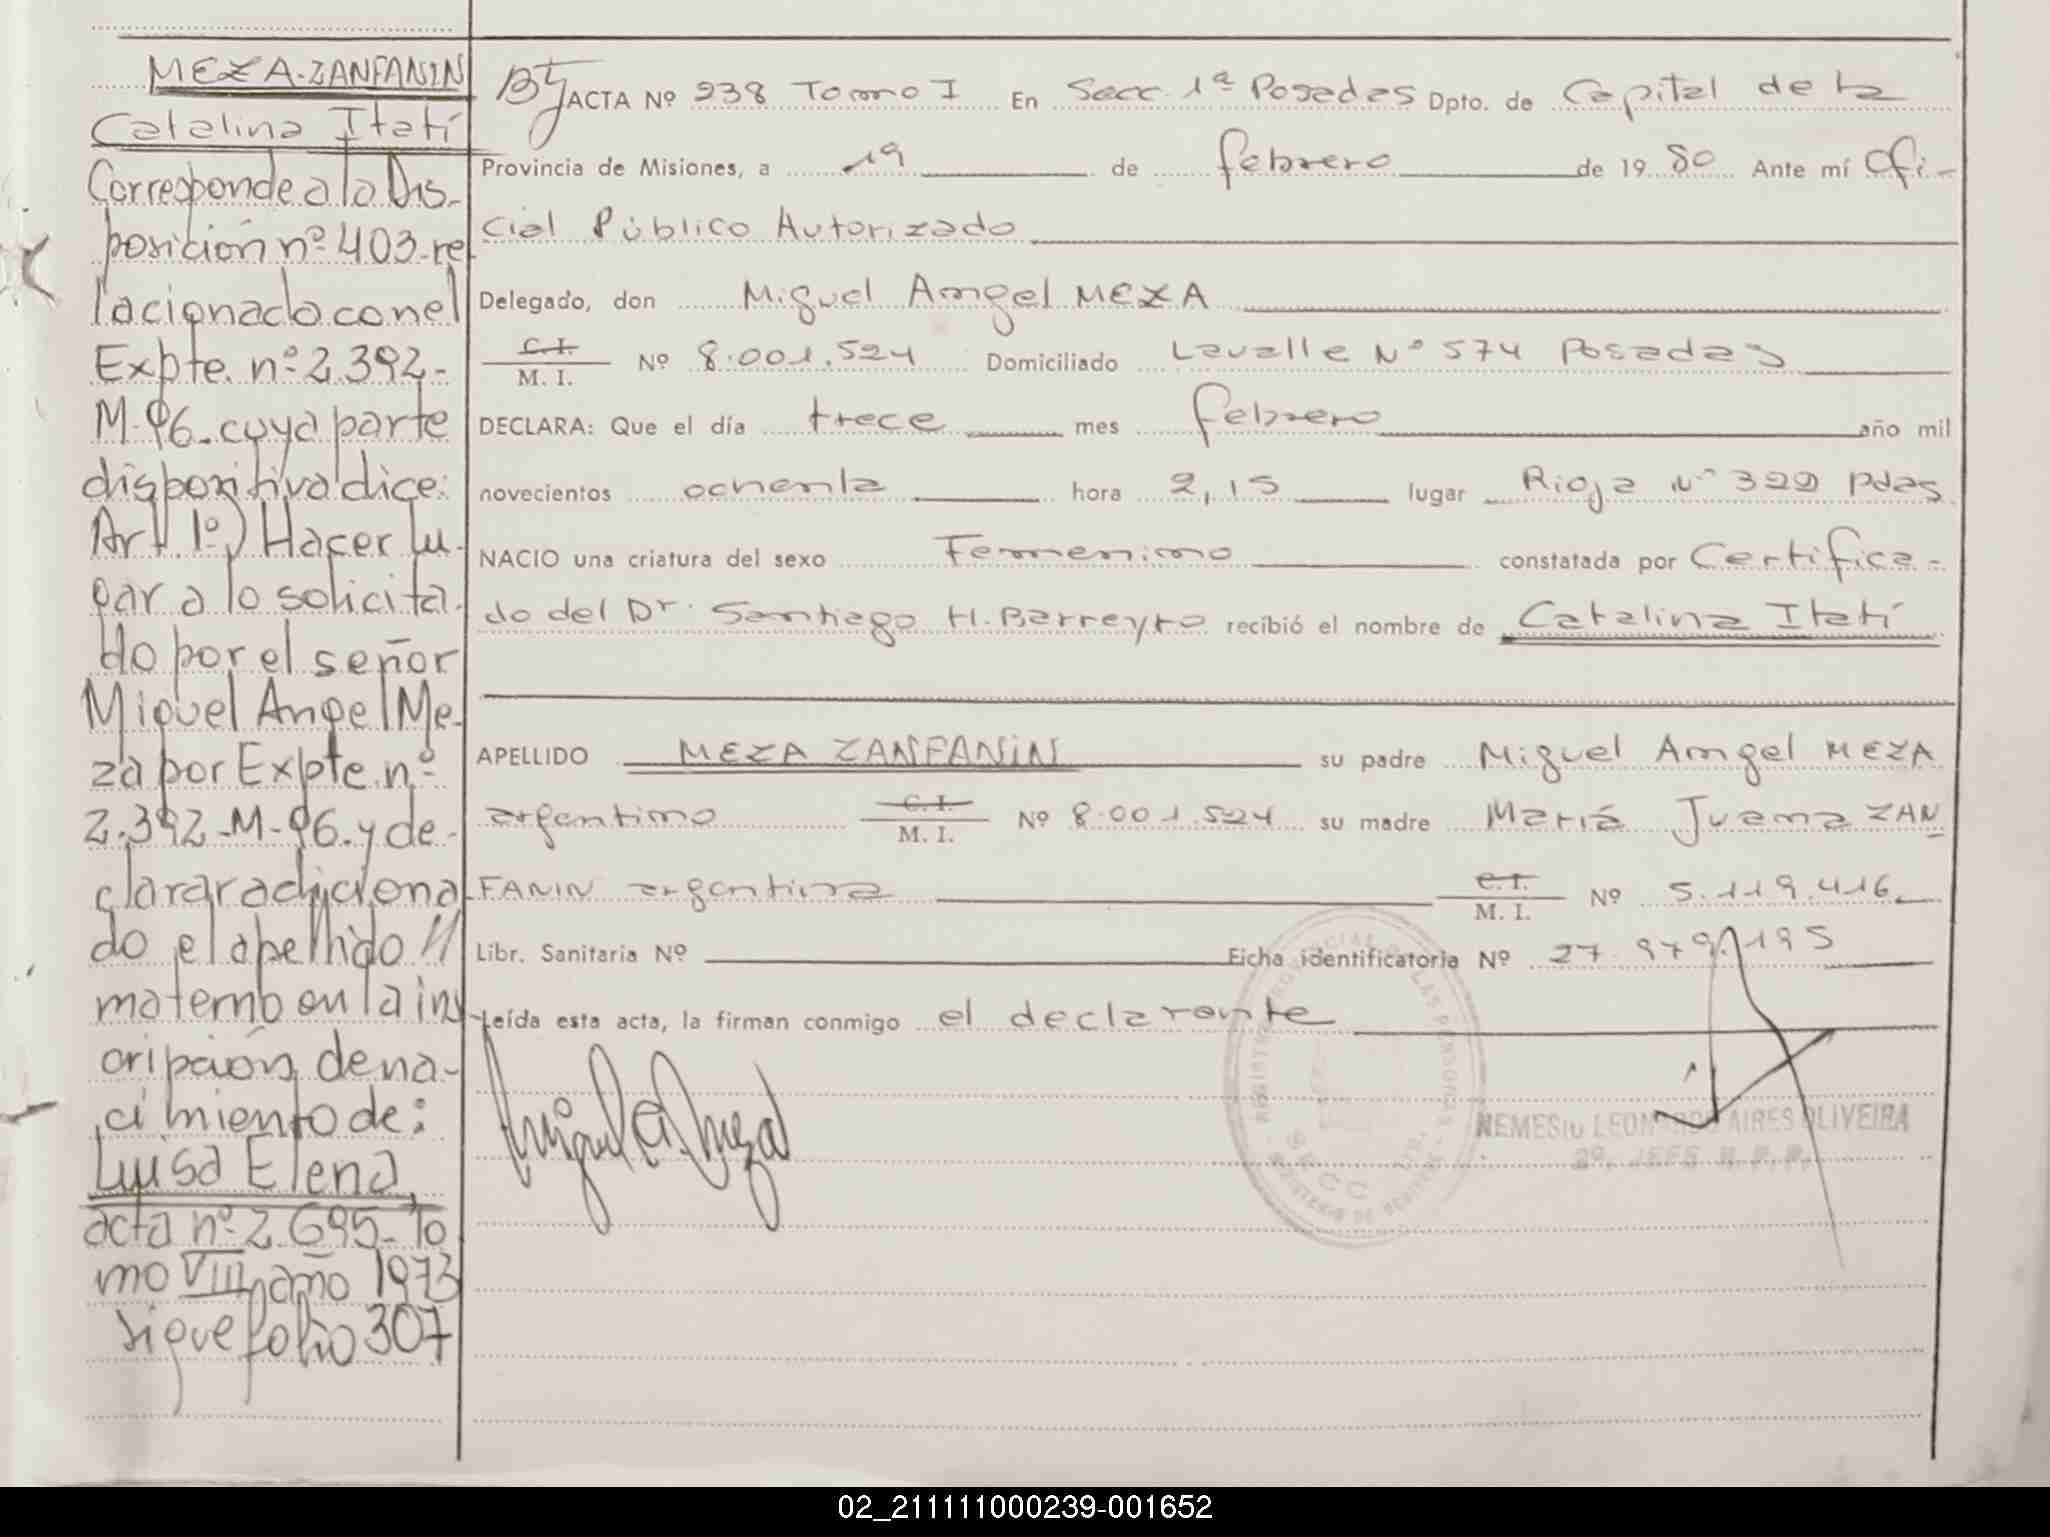 MEZA-ZANFANIN
Catalina Itatí
Corresponde a la Dis-
posición nº 403-re
lacionado con el
Expte. nº 2.392-
M-96. cuya parte
dispositiva dice:
Art 1º) Hacer lu-
gar a lo solicita-
do por el señor
Miguel Angel Me-
za por Expte. nº
2.392-M-96. y de-
clarar adiciona
do el apellido //
materno en la ins
cripción de na-
cimiento de:
Luisa Elena,
acta nº 2.695-To
mo VIII año 1973
sigue folio 307
ACTA Nº 238 Tomo I En Secc. 1ª Posadas Dpto. de Capital de la
Provincia de Misiones, a 19 de febrero de 19 80 Ante mí Ofi-
cial Público Autorizado
Delegado, don Miguel Angel MEZA
C.I.
M. I. Nº 8.001.524 Domiciliado Lavalle Nº 574 Posadas
DECLARA: Que el día trece mes febrero año mil
novecientos ochenta hora 2,15 lugar Rioja Nº 322 Pdas.
NACIO una criatura del sexo Femenino constatada por Certifica-
do del Dr. Santiago H. Barreyro recibió el nombre de Catalina Itatí
APELLIDO MEZA ZANFANIN su padre Miguel Angel MEZA
argentino C.I. M. I. Nº 8.001.524 su madre María Juana ZAN
FANIN argentina C.I. M. I. Nº 5.119.416.
Libr. Sanitaria Nº Ficha identificatoria Nº 27.979.195
Leída esta acta, la firman conmigo el declarante
Miguel A. Meza
NEMESIO LEONARDO AIRES OLIVEIRA
2º. JEFE R.P.P.
02_211111000239-001652